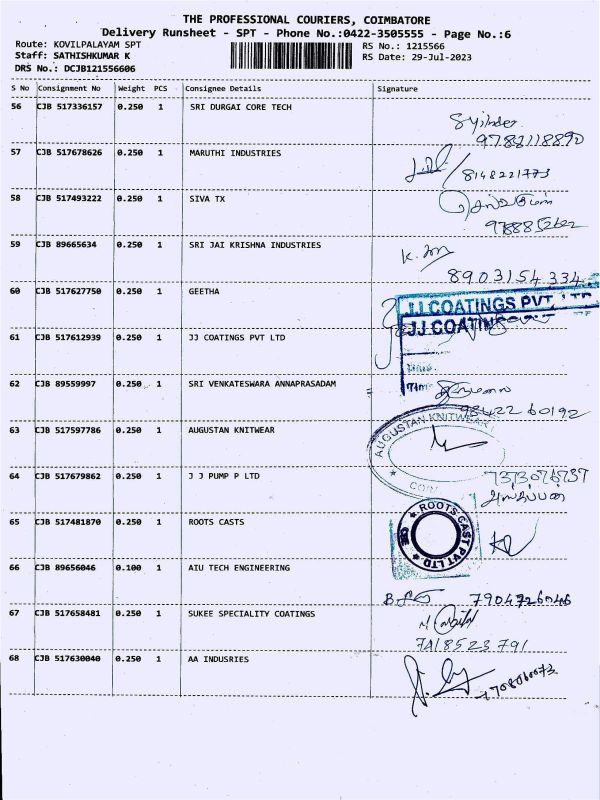 THE PROFESSIONAL COURIERS, COIMBATORE
Delivery Runsheet - SPT - Phone No.:0422-3505555 - Page No.:6
Route: KOVILPALAYAM SPT
RS No.: 1215566
Staff: SATHISHKUMAR K
RS Date: 29-Jul-2023
DRS No.: DCJB121556606
S No Consignment No Weight PCS Consignee Details Signature
56 CJB 517336157 0.250 1 SRI DURGAI CORE TECH
57 CJB 517678626 0.250 1 MARUTHI INDUSTRIES
8148221773
58 CJB 517493222 0.250 1 SIVA TX
59 CJB 89665634 0.250 1 SRI JAI KRISHNA INDUSTRIES
8903154334
60 CJB 517627750 0.250 1 GEETHA
JJ COATINGS PVT LTD
JJ COATINGS
61 CJB 517612939 0.250 1 JJ COATINGS PVT LTD
62 CJB 89559997 0.250 1 SRI VENKATESWARA ANNAPRASADAM
98422 60192
63 CJB 517597786 0.250 1 AUGUSTAN KNITWEAR
AUGUSTAN KNITWEAR
64 CJB 517679862 0.250 1 J J PUMP P LTD
7373076737
65 CJB 517481870 0.250 1 ROOTS CASTS
ROOTS CAST PVT LTD
CBE
66 CJB 89656046 0.100 1 AIU TECH ENGINEERING
7904726046
67 CJB 517658481 0.250 1 SUKEE SPECIALITY COATINGS
7418523791
68 CJB 517630040 0.250 1 AA INDUSRIES